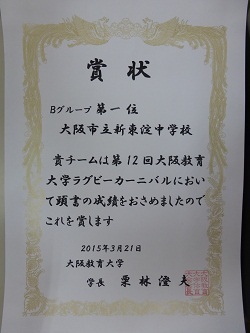 賞状
Bグループ 第一位
大阪市立新東淀中学校
貴チームは第12回大阪教育
大学ラグビーカーニバルにおい
て頭書の成績をおさめましたので
これを賞します
2015年3月21日
大阪教育大学
学長 栗林澄夫